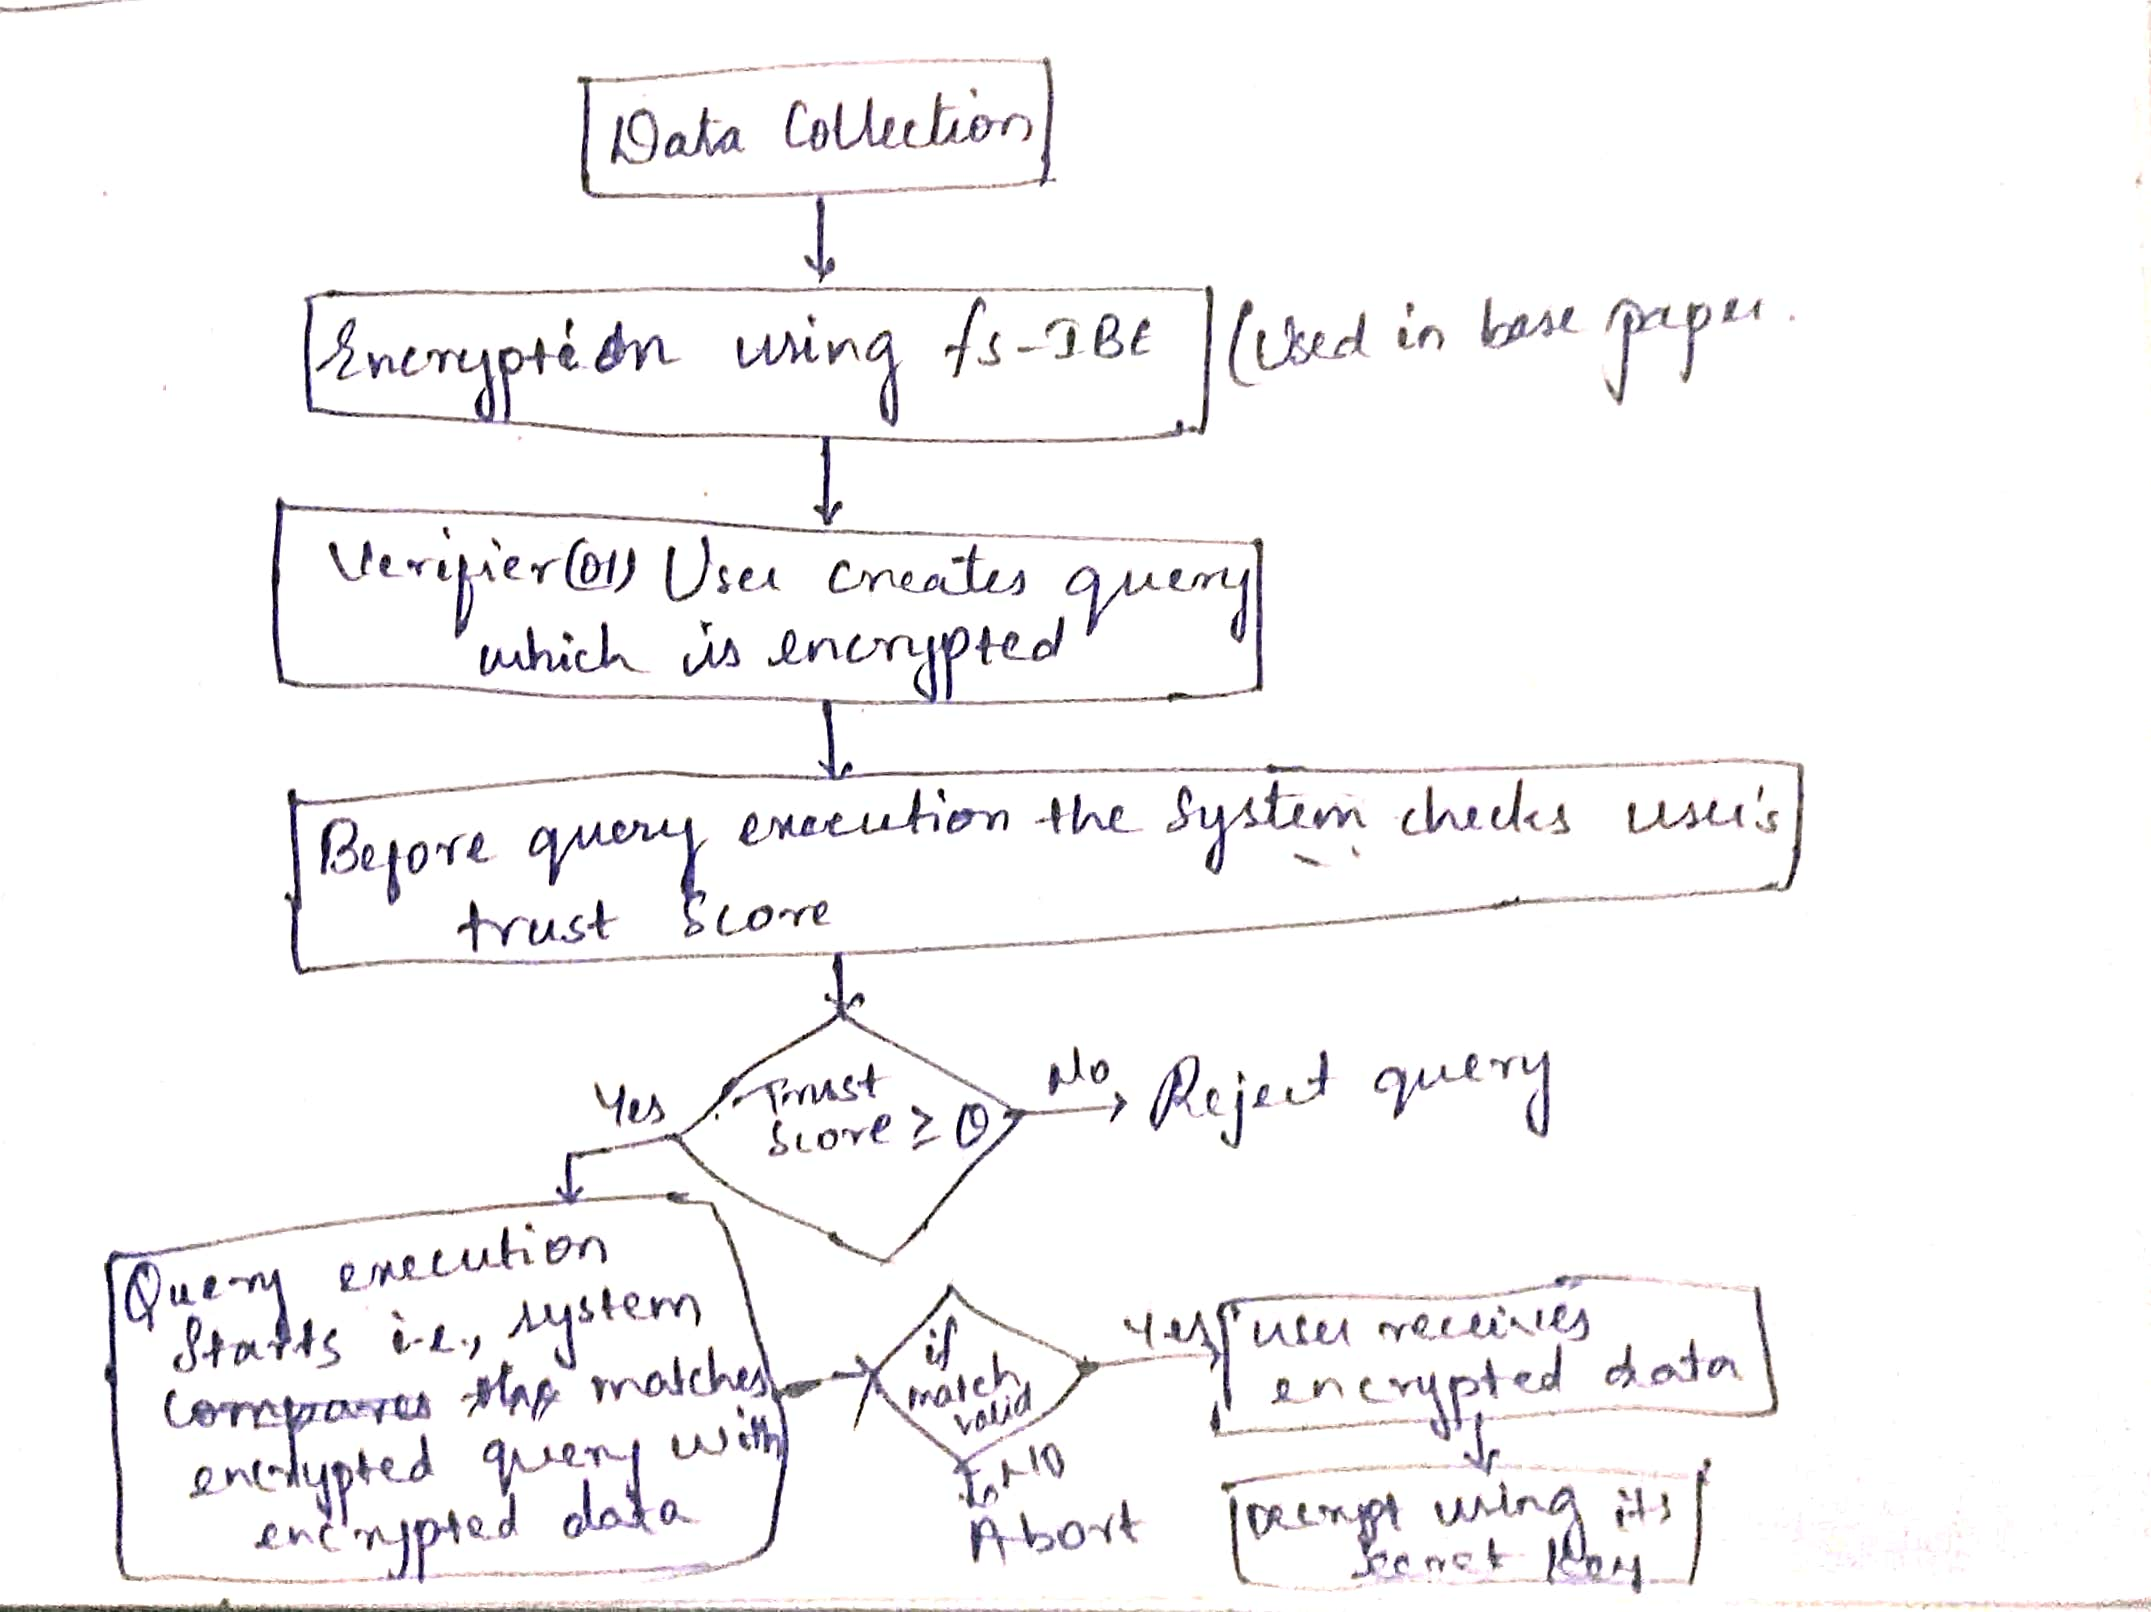 Data Collection
Encryption using fs-IBE (Used in base paper.
Verifier(or) User creates query
which is encrypted
Before query execution the System checks user's
trust Score
Yes
Trust
Score ≥ θ
No
Reject query
Query execution
Starts i.e., system
compares matches
encrypted query with
encrypted data
if
match
valid
Yes
user receives
encrypted data
NO
Abort
Decrypt using its
secret key